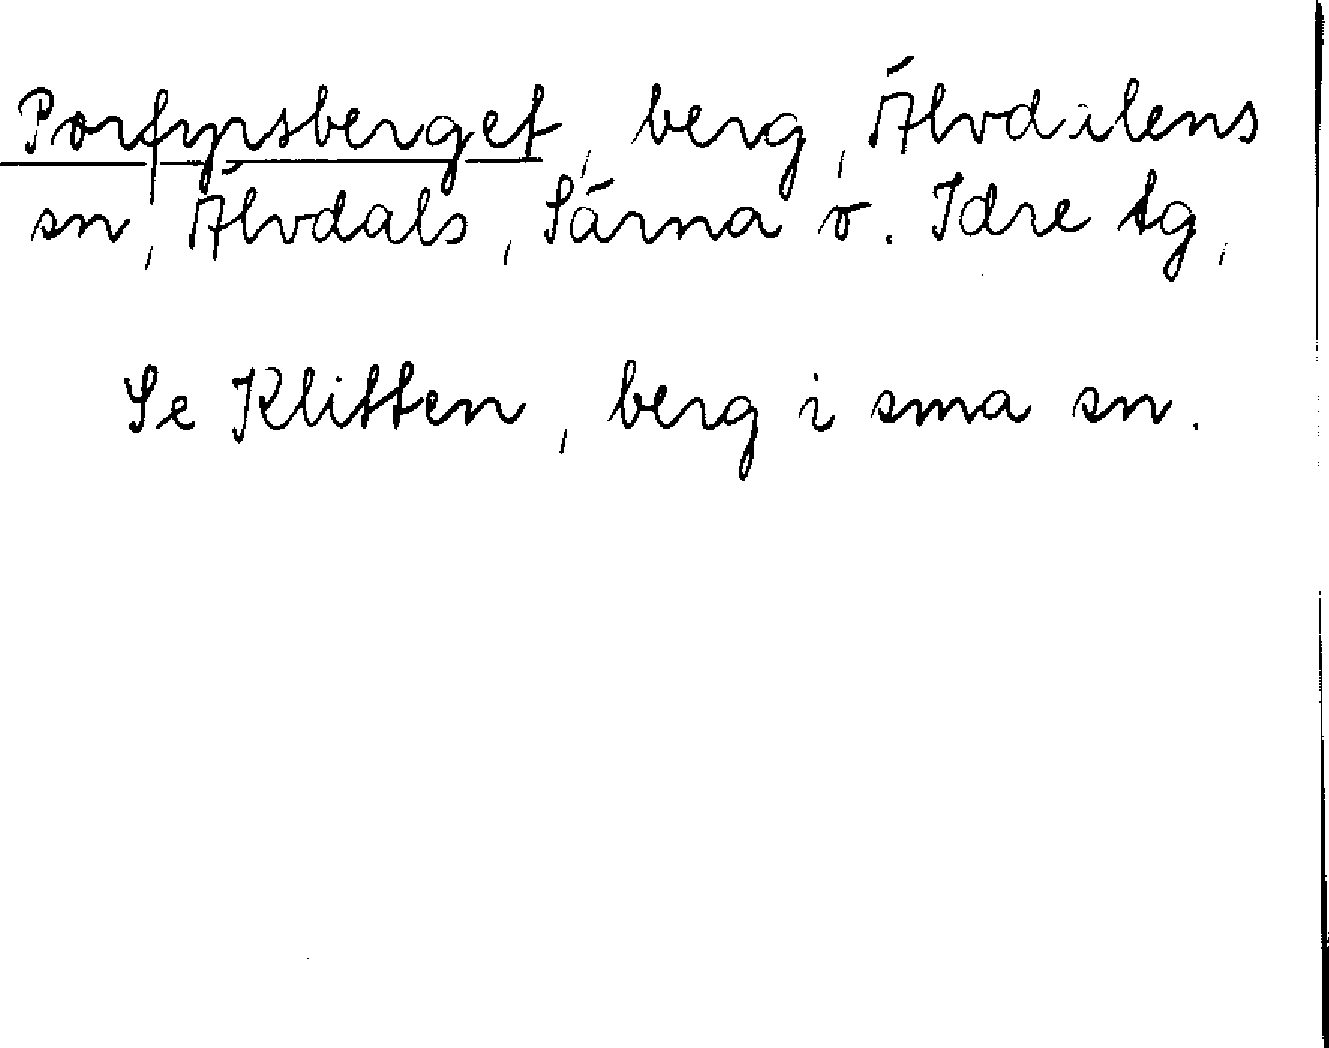 Porfyrsberget, berg, Älvdalens
sn, Älvdals, Särna o. Idre tg,
Se Klitten, berg i sma sn.